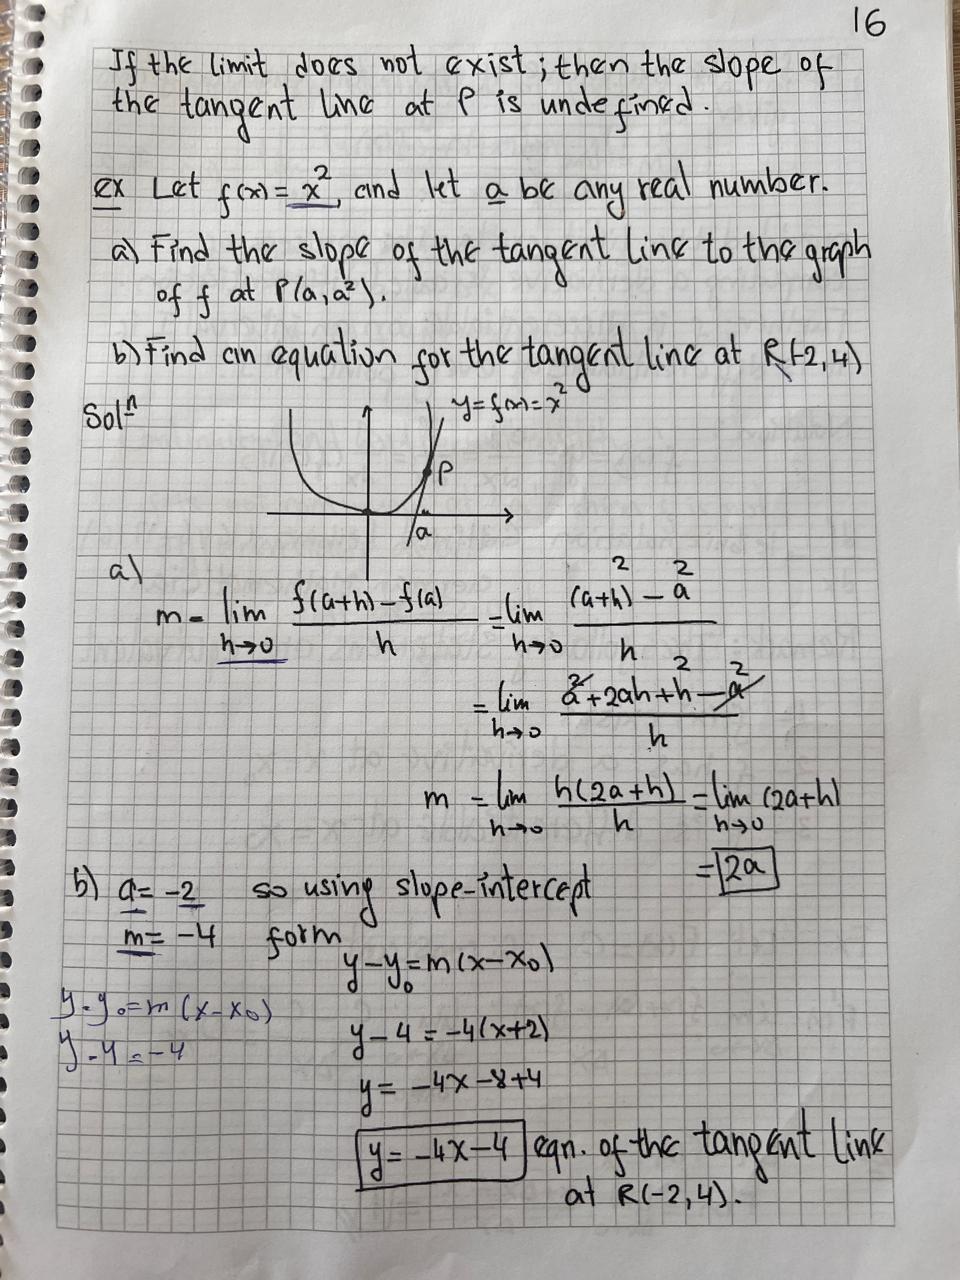 16
If the limit does not exist; then the slope of
the tangent line at P is undefined.
ex Let f(x) = x², and let a be any real number.
a) Find the slope of the tangent line to the graph
of f at P(a, a²).
b) Find an equation for the tangent line at R(-2,4)
Solⁿ
y = f(x) = x²
P
a
a)
m = lim h→0 (f(a+h) - f(a))/h = lim h→0 ((a+h)² - a²)/h
= lim h→0 (a² + 2ah + h² - a²)/h
m = lim h→0 h(2a+h)/h = lim h→0 (2a+h)
= 2a
b) a = -2 so using slope-intercept
m = -4 form
y - y₀ = m(x - x₀)
y - y₀ = m(x - x₀)
y - 4 = -4(x+2)
y - 4 = -4
y = -4x - 8 + 4
y = -4x - 4 eqn. of the tangent line
at R(-2,4).